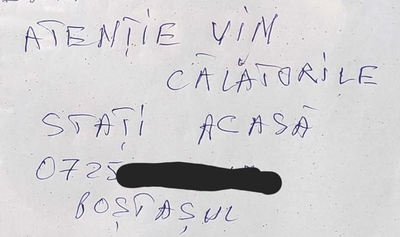 ATENȚIE VIN
CĂLĂTORILE
STAȚI ACASĂ
0725
POȘTAȘUL